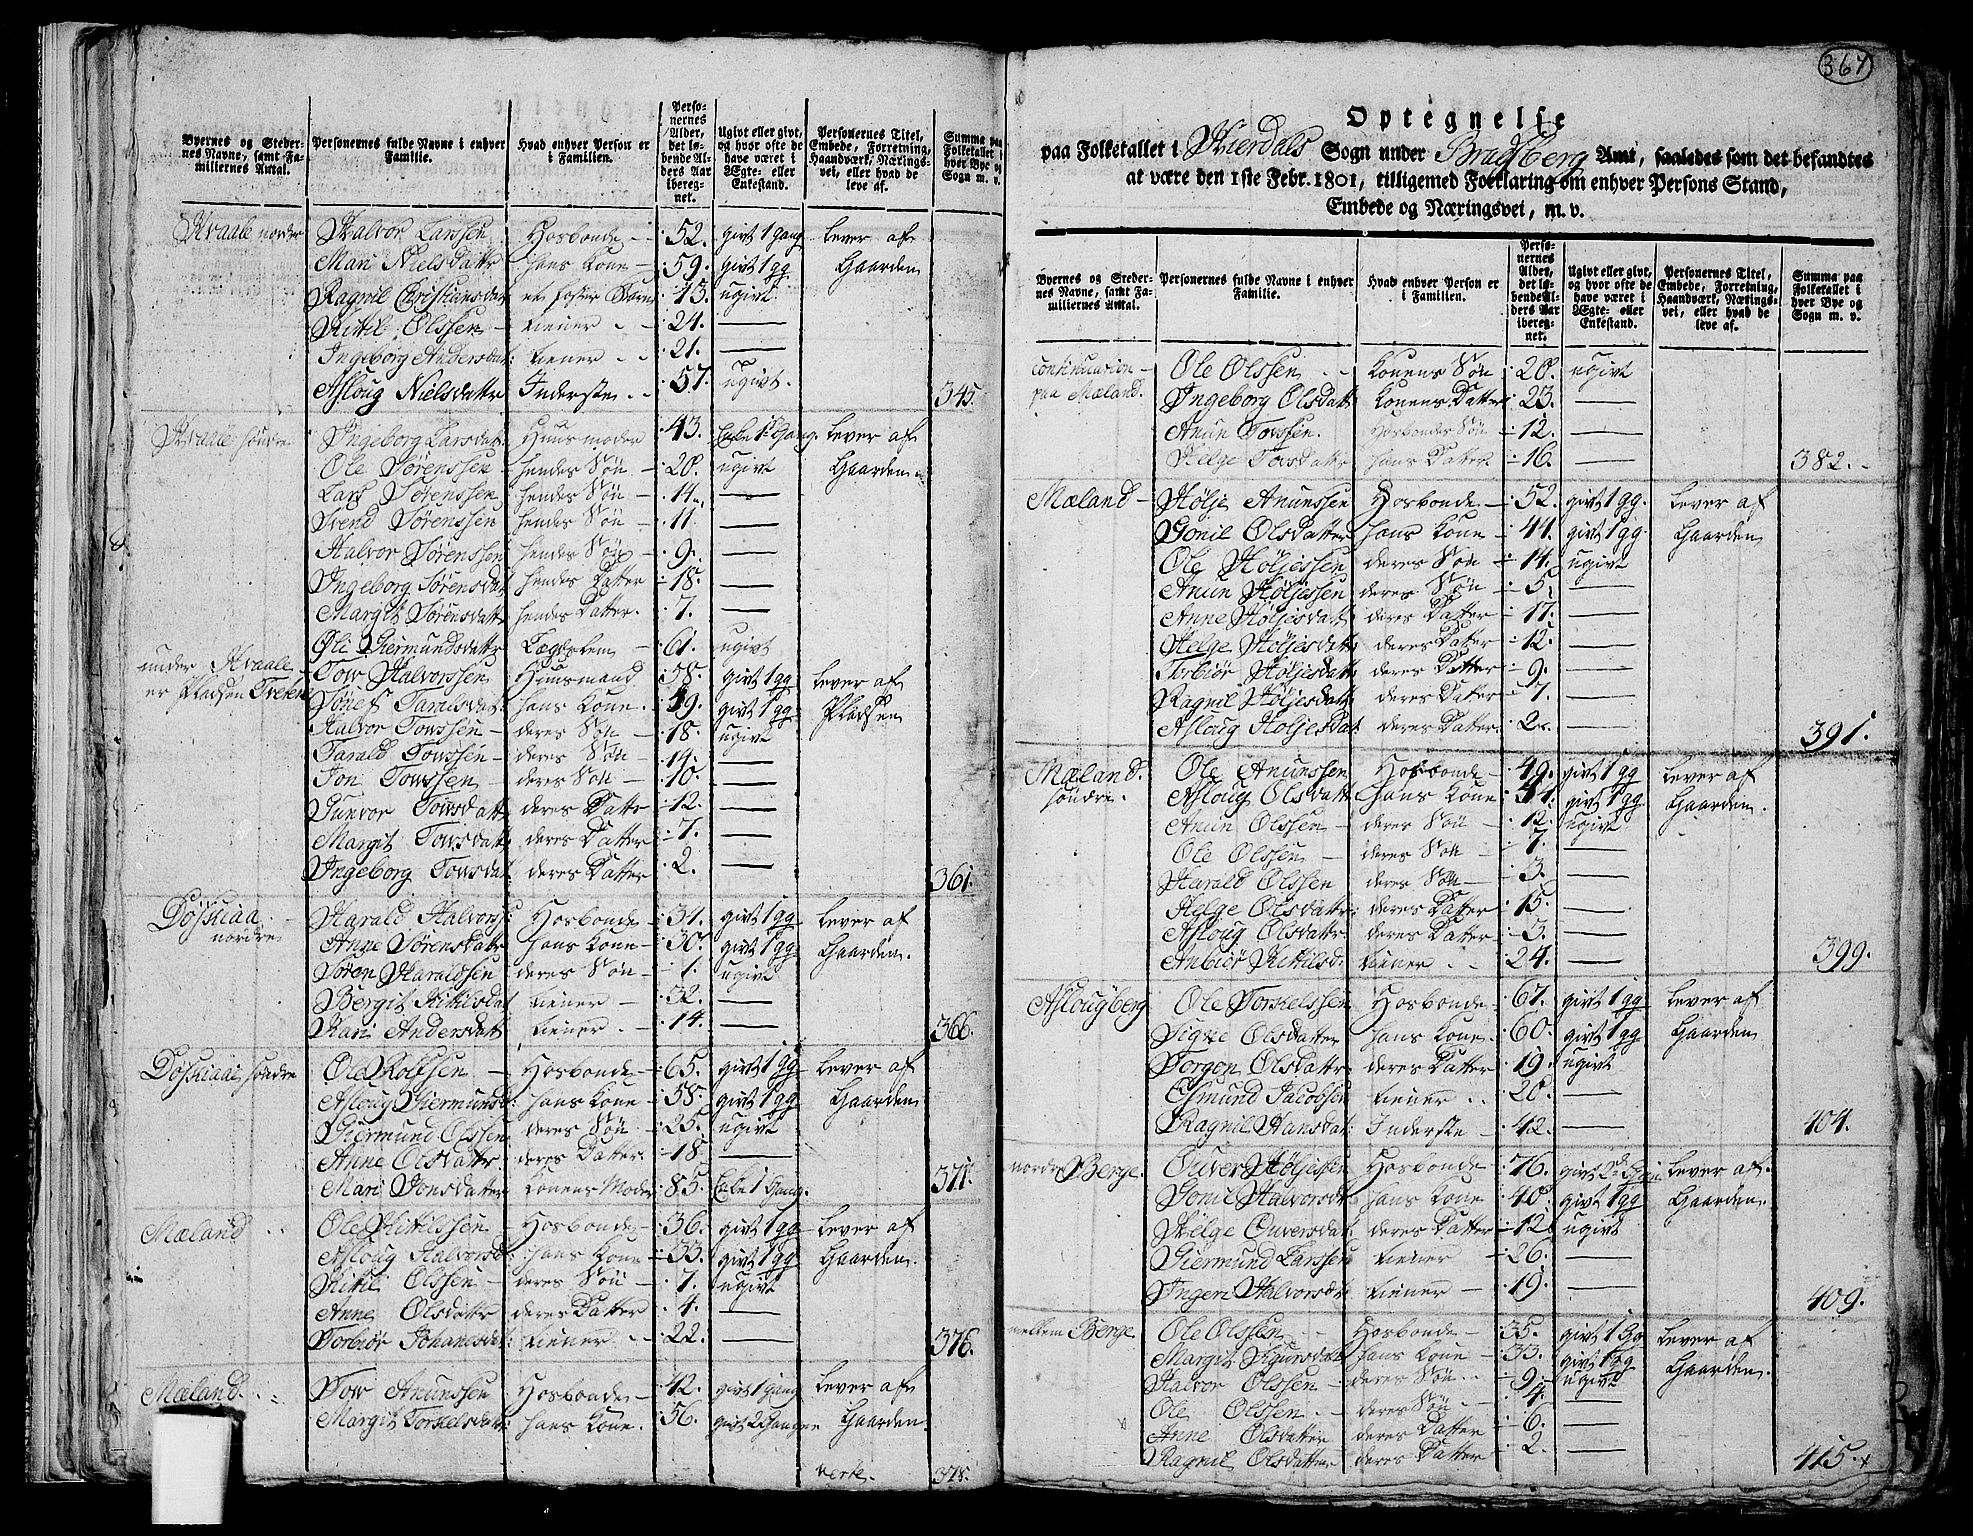 Byernes og Steder-
nes Navne, samt Fa-
miliernes Antal.
Personernes fulde Navne i enhver
Familie.
Hvad enhver Person er
i Familien.
Perso-
nernes
Alder,
det lø-
bende Al-
ders Aar
ibereg-
net.
Ugivt eller givt,
og hvor ofte de
have været i
Ægte- eller
Enkestand.
Personernes Titel,
Embede, Forretning,
Haandværk, Nærings-
vei, eller hvad de
leve af.
Summa paa
Folketallet i
hver Bye og
Sogn m. v.
Kvaale nordre Halvor Larssen Hosbonde 52. givt 1 gang lever af
Mari Nielsdattr hans Kone 59. givt 1 gg Gaarden
Ragnil Christiansdat et foster Barn 13. ugivt
Kittil Olssen tiener 24. —
Ingeborg Andersdat: tiener 21. —
Asloug Nielsdattr Inderste 57. ugivt. 345.
Kvaale söndre Ingeborg Larsdat: Huusmoder 43. Enke 1 Gang. lever af
Ole Sørenssen hendes Søn 20. ugivt Gaarden
Lars Sørenssen hendes Søn 14. —
Svend Sørenssen hendes Søn 11. —
Halvor Sørenssen hendes Søn 9. —
Ingeborg Sørensdat hendes Datter 18. —
Margit Sørensdattr hendes Datter. 7. —
Oli Giermundsdattr Lægdslem 61. ugivt
under Kvaale Tow Halvorssen Huusmand 58. givt 1 gg lever af
er Pladsen Tveten Tarulsdat: hans Kone 49. givt 1 gg Pladsen
Halvor Towssen deres Søn 18. ugivt
Tarald Towssen deres Søn 14. —
Jon Towssen deres Søn 10. —
Gunvor Towsdatt deres Dattr 12. —
Margit Towsdatt deres Datter 7. —
Ingeborg Towsdat deres Datter 2. — 361.
nordre Harald Halvorss: Hosbonde 34. givt 1 gg lever af
Anne Sørensdattr hans Kone 30. givt 1 gg Gaarden.
Søren Haraldssen deres Søn 1. ugivt
Bergit Kitilsdat tiener 32. —
Kari Andersdatt tiener 14. — 366.
söndre Ole Rolfsen Hosbonde 65. givt 1 gg lever af
Asloug Giermunds: hans Kone 58. givt 1 gg Gaarden
Giermund Olssen deres Søn 25. ugivt
Anne Olsdattr deres Datter 18. —
Mari Jonsdatter Konens Moder 85. Enke 1 Gang. 371.
Mæland Ole Kittilssen Hosbonde 36. givt 1 gg lever af
Asloug Halvorsd: hans Kone 33. givt 1 gg Gaarden.
Kittil Olssen deres Søn 7. ugivt
Anne Olsdattr deres Datter 4. —
Torbiør Johanesdat: tiener 22. — 376.
Mæland Tow Anunssen Hosbonde 42. givt 1 gang lever af
Margit Torkelsdatt: hans Kone 56. givt 2 Ganger Gaarden
verte. 378.
367
Optegnelse
paa Folketallet i Hierdals Sogn under Bradsberg Amt, saaledes som det befandtes
at være den 1ste Febr. 1801, tilligemed Forklaring om enhver Persons Stand,
Embede og Næringsvei, m. v.
Byernes og Steder-
nes Navne, samt Fa-
miliernes Antal.
Personernes fulde Navne i enhver
Familie.
Hvad enhver Person er
i Familien.
Perso-
nernes
Alder,
det lø-
bende Al-
ders Aar
ibereg-
net.
Ugivt eller givt,
og hvor ofte de
have været i
Ægte- eller
Enkestand.
Personernes Titel,
Embede, Forretning,
Haandværk, Nærings-
vei, eller hvad de
leve af.
Summa paa
Folketallet i
hver Bye og
Sogn m. v.
continuation Ole Olssen Konens Søn 20. ugivt
paa Mæland. Ingeborg Olsdatt Konens Datter 23. —
Anun Towssen. Hosbondes Søn 12. —
Helge Towsdattr hans Datter. 16. — 382.
Mæland Høljе Anunssen Hosbonde 52. givt 1 gg. lever af
Gonil Olsdatter hans Kone 44. givt 1 gg Gaarden
Ole Høljessen deres Søn 14. ugivt
Anun Høljessen deres Søn 5. —
Anne Høljesdatt deres Datter 17. —
Helge Høljesdatt deres Datter 12. —
Torbiør Høljesdatt deres Datter 9. —
Ragnil Höljesdatt deres Datter 7. —
Asloug Höljesdat deres Datter 2. — 391.
Mæland. Ole Anunssen Hosbonde 49. givt 1 gg lever af
söndre. Asloug Olsdatt hans Kone 41. givt 1 gg Gaarden.
Anun Olssen deres Søn 12. ugivt
Ole Olssen deres Søn 7. —
Harald Olssen deres Søn 3. —
Helge Olsdattr: deres Datter 15. —
Asloug Olsdattr deres Datter 5. —
Anbiør Kittilsd: tiener 24. — 399.
Aslougberg Ole Torkelssen Hosbonde 67. givt 1 gg lever af
Signe Olsdatter hans Kone 60. givt 1 gg Gaarden
Torgon Olsdattr deres Datter 19. ugivt
Esmund Jacobsen tiener 20. —
Ragnil Hansdat: Inderste 42. — 404.
nordre Berge Ouver Høljessen Hosbonde 76. givt lever af
Gonil Halvorsdt hans Kone 40. givt 1 gg Gaarden.
Hælge Ouversdat: deres Datter 12. ugivt
Giermund Larssen tiener 26. —
Ingeri Halvorsdt tiener 19. — 409.
mellem Berge Ole Olssen Hosbonde 35. givt 1 Gg lever af
Margit Sigursdat hans Kone 33. givt 1 gg Gaarden.
Halvor Olssen deres Søn 9. ugivt
Ole Olssen deres Søn 4. —
Anne Olsdatter deres Datter 6.
Ragnil Olsdatter deres Datter 2. — 415.